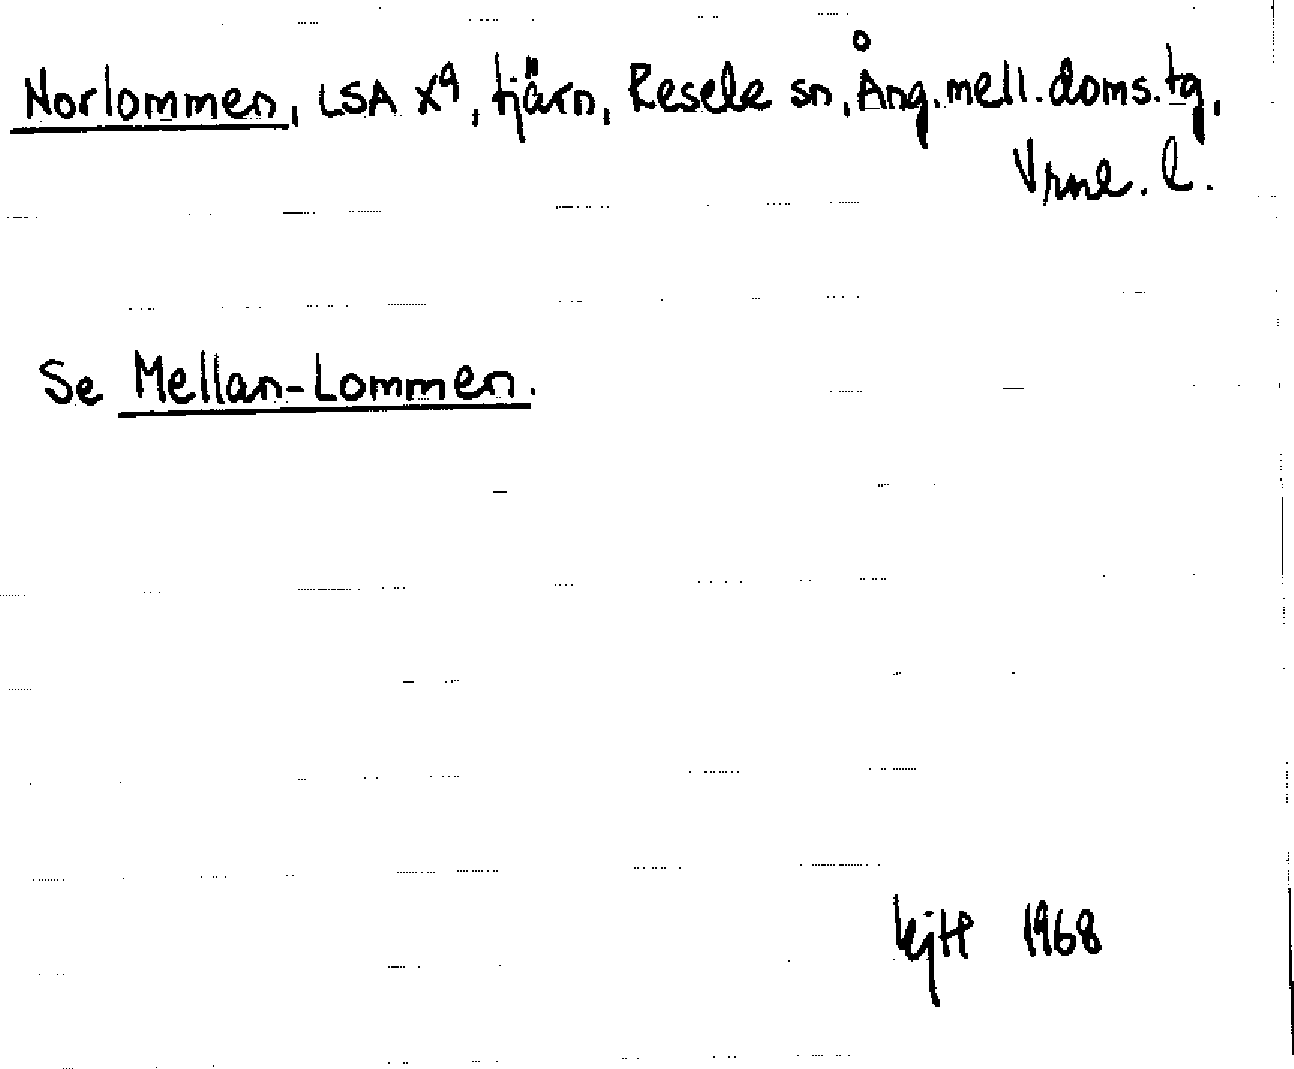 Norlommen, LSA X9, tjärn, Resele sn, Ång. mell. doms. tg,
Vrnl. l.
Se Mellan-Lommen.
1968